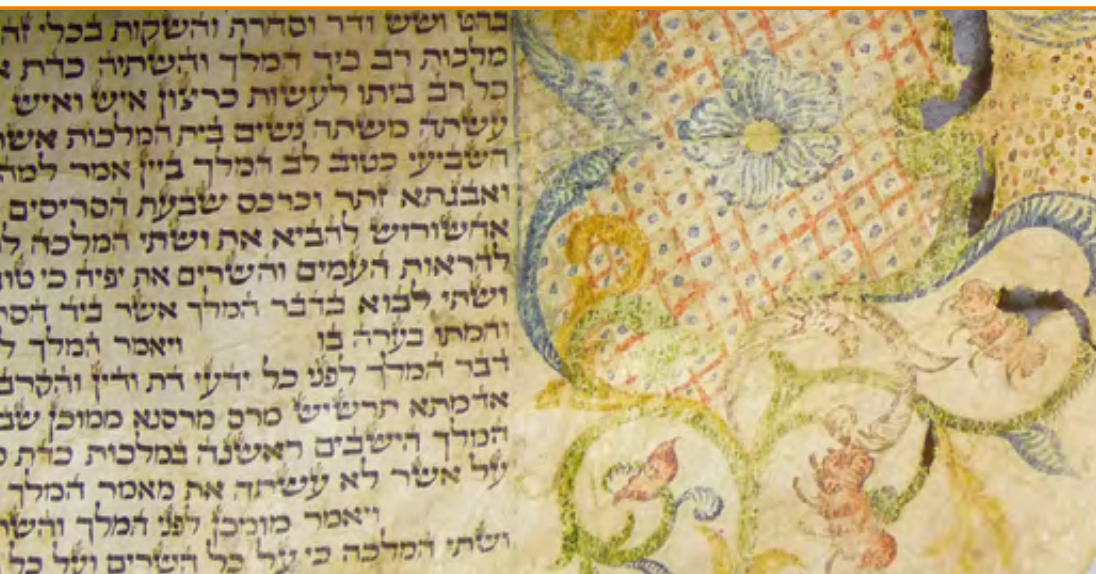 בהט ושש ודר וסחרת והשקות בכלי זה
מלכות רב כיד המלך והשתיה כדת א
כל רב ביתו לעשות כרצון איש ואיש
עשתה משתה נשים בית המלכות אשר
השביעי כטוב לב המלך ביין אמר למה
ואבגתא זתר וכרכס שבעת הסריסים
אחשורוש להביא את ושתי המלכה ל
להראות העמים והשרים את יפיה כי טוב
ושתי לבוא בדבר המלך אשר ביד הסר
וחמתו בערה בו ויאמר המלך ל
דבר המלך לפני כל ידעי דת ודין והקרב
אדמתא תרשיש מרס מרסנא ממוכן שב
המלך הישבים ראשנה במלכות כדת
על אשר לא עשתה את מאמר המלך
ויאמר מומכן לפני המלך והשר
ושתי המלכה כי על כל השרים ועל כל